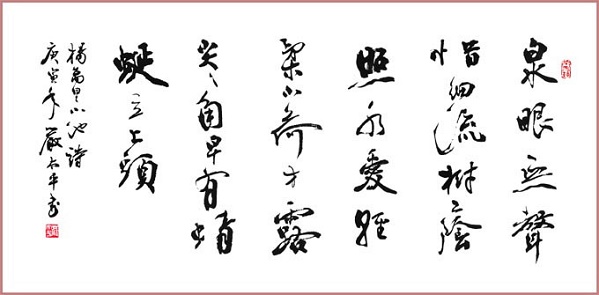 泉眼無聲
惜細流樹蔭
照水愛晴
柔小荷才露
尖々角早有蜻
蜓立上頭
楊萬里小池詩
庚寅年嚴太平書